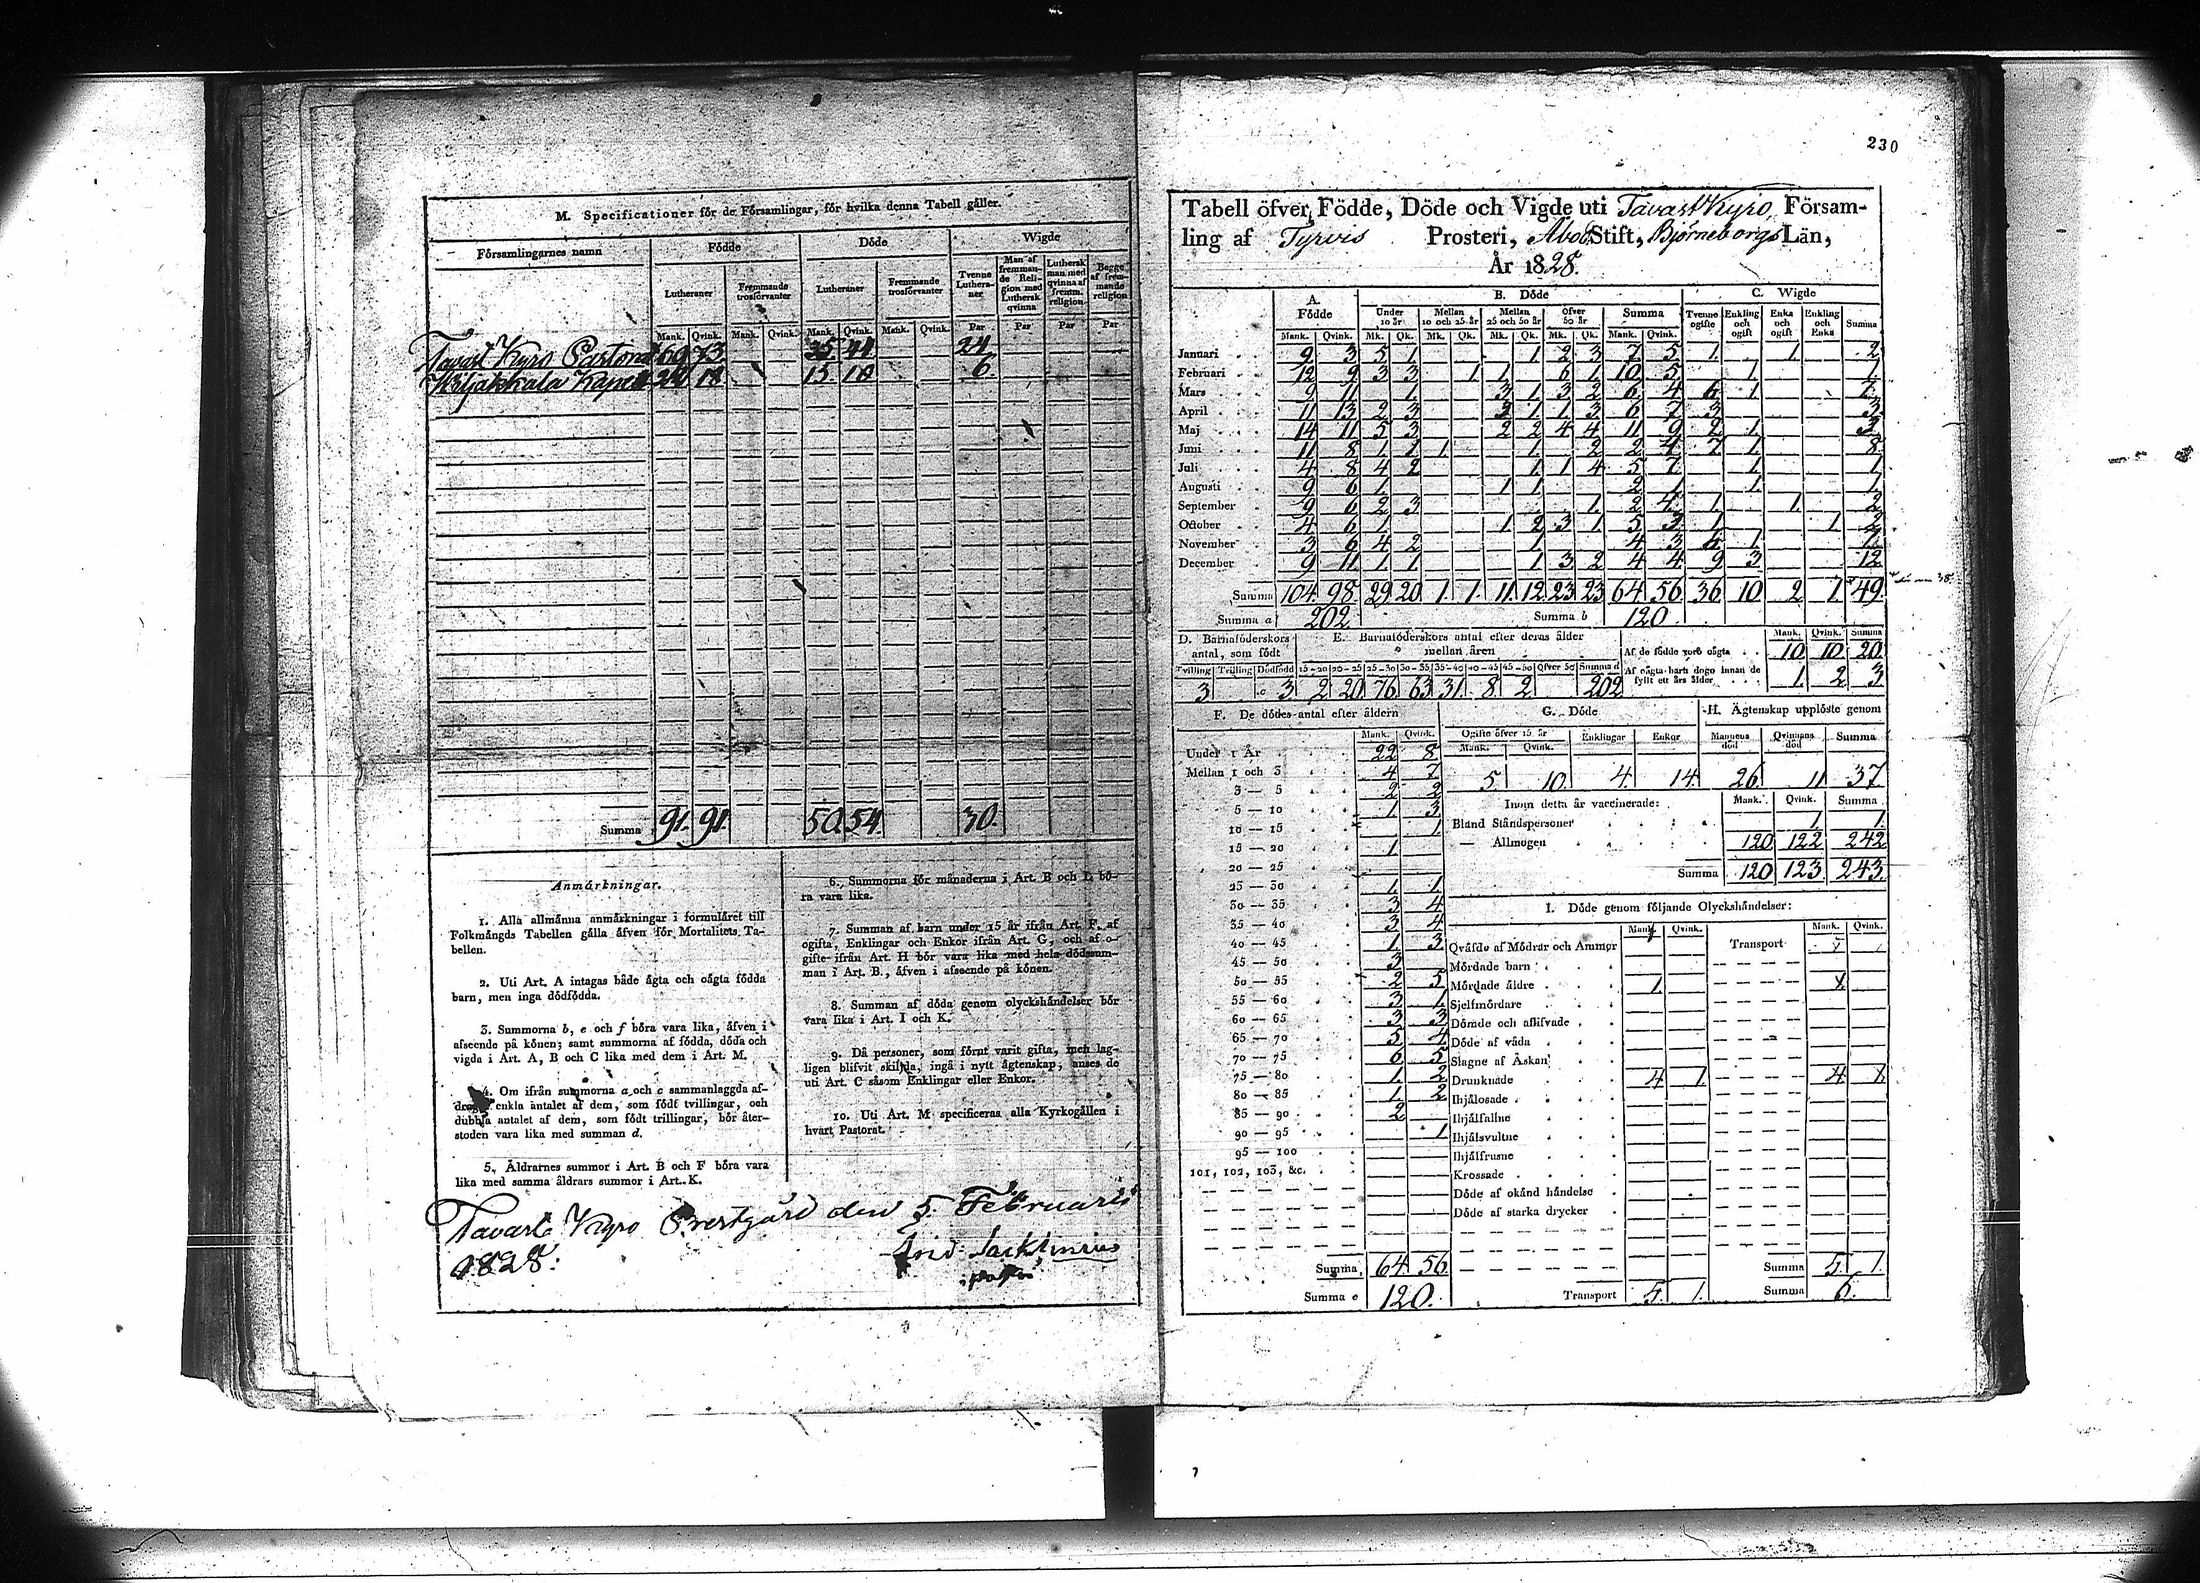 230
M. Specificationer för de Församlingar, för hvilka denna Tabell gäller.
Församlingarnes namn Födde Döde Wigde
Lutheraner Fremmande trosförvanter Lutheraner Fremmande trosförvanter Tvenne Lutheraner Man af fremmande Religion med Luthersk qvinna Luthersk man med qvinna af fremm. religion Begge af fremmande religion
Mank. Qvink. Mank. Qvink. Mank. Qvink. Mank. Qvink. Par Par Par Par
Tavast Kyro 73 35 44 24
Kapell 18 15 10 6
Summa 91. 91. 50. 54. 30.
Anmärkningar.
1. Alla allmänna anmärkningar i formuläret till
Folkmängds Tabellen gälla äfven för Mortalitets Ta-
bellen.
2. Uti Art. A intagas både ägta och oägta födda
barn, men inga dödfödda.
3. Summorna b, e och f böra vara lika, äfven i
afseende på könen; samt summorna af födda, döda och
vigda i Art. A, B och C lika med dem i Art. M.
4. Om ifrån summorna a och c sammanlaggda af-
drages enkla antalet af dem, som födt tvillingar, och
dubbla antalet af dem, som födt trillingar, bör åter-
stoden vara lika med summan d.
5. Åldrarnes summor i Art. B och F böra vara
lika med samma åldrars summor i Art. K.
6. Summorna för månaderna i Art. B och L bö-
ra vara lika.
7. Summan af barn under 15 år ifrån Art. F. af
ogifta, Enklingar och Enkor ifrån Art. G, och af o-
gifte ifrån Art. H bör vara lika med hela dödssum-
man i Art. B., äfven i afseende på könen.
8. Summan af döda genom olyckshändelser bör
vara lika i Art. I och K.
9. Då personer, som förut varit gifta, men lag-
ligen blifvit skilda, ingå i nytt ägtenskap, anses de
uti Art. C såsom Enklingar eller Enkor.
10. Uti Art. M specificeras alla Kyrkogällen i
hvart Pastorat.
Tavast Kyro Prestgård den 5. Februarii
1828.
Tabell öfver Födde, Döde och Vigde uti Tavast Kyro Försam-
ling af Tyrvis Prosteri, Åbo Stift, Björneborgs Län,
År 1828.
A. Födde B. Döde C. Wigde
Under 10 år Mellan 10 och 25 år Mellan 25 och 50 år Öfver 50 år Summa Tvenne ogifte Enkling och ogift Enka och ogift Enkling och Enka Summa
Mank. Qvink. Mk. Qk. Mk. Qk. Mk. Qk. Mk. Qk. Mank. Qvink.
Januari 9 3 5 1 1 2 3 7 5 1 1 2
Februari 12 9 3 3 1 1 6 1 10 5 1 1
Mars 9 11 1 3 1 3 2 6 4 6 1 7
April 11 13 2 3 3 1 1 3 6 7 3 3
Maj 14 11 5 3 2 2 4 4 11 9 2 1 3
Juni 11 8 1 1 1 1 2 2 4 7 1 8
Juli 4 8 4 2 1 1 4 5 7 1 1
Augusti 9 6 1 1 1 2 1 1 1
September 9 6 2 3 1 2 4 1 1 2
October 4 6 1 1 2 3 1 5 3 1 1 2
November 3 6 4 2 1 4 3 6 1 7
December 9 11 1 1 1 3 2 4 4 9 3 12
Summa 104. 98. 29 20 1. 1. 11. 12. 23 23 64 56 36 10 2 1 49.
Summa a 202 Summa b 120
D. Barnaföderskors antal, som födt E. Barnaföderskors antal efter deras ålder mellan åren
Tvilling Trilling Dödfödd 15—20 20—25 25—30 30—35 35—40 40—45 45—50 Öfver 50 Summa d
3 c 3 2 20 76 63 31 8 2 202
Mank. Qvink. Summa
Af de födde voro oägta 10 10 20
Af oägta barn dogo innan de fyllt ett års ålder 1 2 3
F. De dödes antal efter åldern
Mank. Qvink.
Under 1 År 22 8
Mellan 1 och 3 4 7
3 — 5 2 2
5 — 10 1 3
10 — 15 1
15 — 20 1
20 — 25
25 — 30 1 1
30 — 35 3 4
35 — 40 3 4
40 — 45 1 3
45 — 50 3
50 — 55 2 5
55 — 60 3 1
60 — 65 3 3
65 — 70 5 4
70 — 75 6 5
75 — 80 1 2
80 — 85 1 2
85 — 90 2
90 — 95 1
95 — 100
101, 102, 103, &c.
Summa 64 56
Summa e 120.
G. Döde
Ogifte öfver 15 år Enklingar Enkor
Mank. Qvink.
5 10 4 14
H. Ägtenskap upplöste genom
Mannens död Qvinnans död Summa
26 11 37
Inom detta år vaccinerade: Mank. Qvink. Summa
Bland Ståndspersoner 1 1
— Allmogen 120 122 242
Summa 120 123 243
I. Döde genom följande Olyckshändelser:
Mank. Qvink. Transport Mank. Qvink.
Qväfde af Mödrar och Ammor
Mördade barn
Mördade äldre 1
Sjelfmördare
Dömde och aflifvade
Döde af våda
Slagne af Åskan
Drunknade 4 1 4 1
Ihjälosade
Ihjälfallne
Ihjälsvultne
Ihjälfrusne
Krossade
Döde af okänd händelse
Döde af starka drycker
Summa 5 1
Transport 5 1 Summa 6